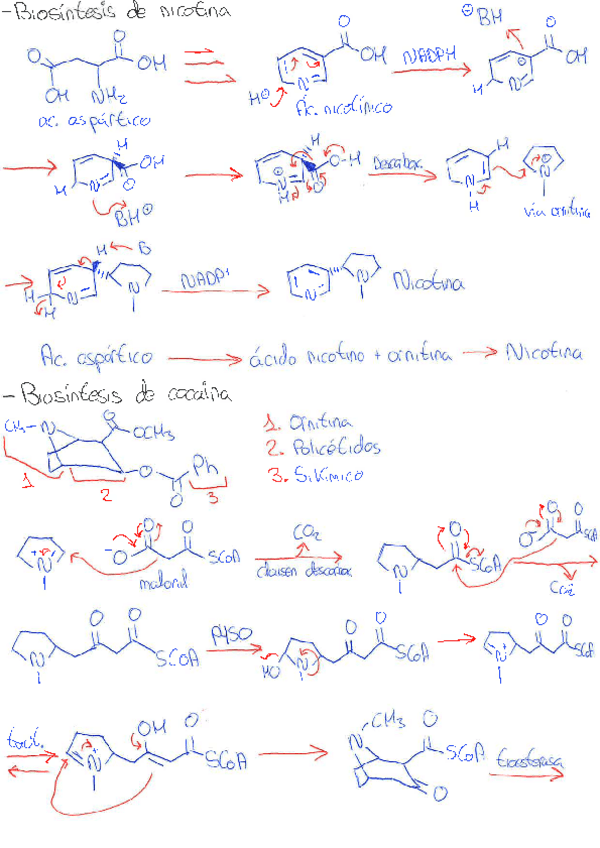 - Biosíntesis de nicotina
⊖BH
O O
OH
OH NH2
ác. aspártico
H⊖
N
O
OH
Ác. nicotínico
NADPH
O
OH
H N
H
OH
O
H N
BH⊕
H
O-H
O
N
H
Descarbox.
H
N
H
N
vía ornitina
H B
H
H N
N
NADP+
N
N
Nicotina
Ac. aspártico → ácido nicotino + ornitina → Nicotina
- Biosíntesis de cocaína
CH3-N
O
OCH3
O
O
Ph
1 2 3
1. Ornitina
2. Policétidos
3. Sikímico
N
O O
O
SCoA
malonil
CO2
claisen descarbox
N
O
SCoA
O O
O
SCoA
CO2
N
O O
SCoA
P450
HO N
O O
SCoA
N+
O O
SCoA
taut.
N+
OH O
SCoA
CH3
N
O
SCoA
O
transferasa